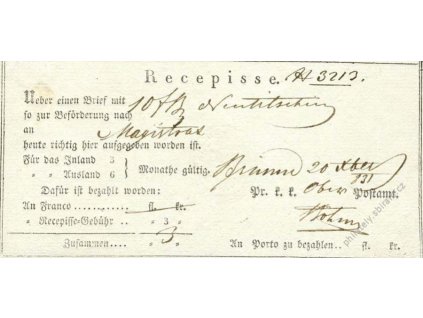 Recepisse. N 3213.
Ueber einen Brief mit 10 f
so zur Beförderung nach Neutitschein
an Magistrat
heute richtig hier aufgegeben worden ist.
Für das Inland 3
„ „ Ausland 6 } Monathe gültig. Brünn 20 Xber
831
Dafür ist bezahlt worden: Pr. k. k. Ober Postamt.
An Franco . . . . . . . . . . fl. kr.
„ Recepisse-Gebühr . . „ 3 „
Zusammen . . . . 3
An Porto zu bezahlen . . fl. kr.
philately.sbiram.cz